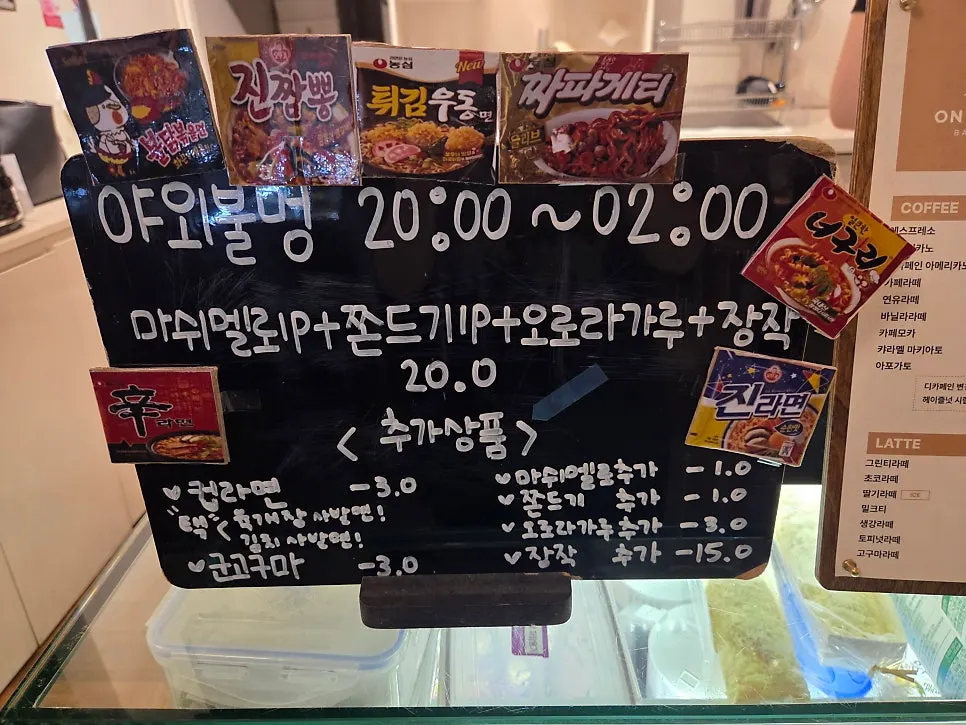 불닭볶음면
진짬뽕
농심
New
튀김우동면
농심
짜파게티
올리브
야외불멍 20:00~02:00
너구리
마쉬멜로1P+쫀드기1P+오로라가루+장작
20.0
辛라면
진라면
순한맛
<추가상품>
컵라면 -3.0
"택" <육개장 사발면!
김치 사발면!
군고구마 -3.0
마쉬멜로추가 -1.0
쫀드기 추가 -1.0
오로라가루추가 -3.0
장작 추가 -15.0
ON
COFFEE
에스프레소
카페라떼
연유라떼
바닐라라떼
카페모카
캬라멜 마키아토
아포가토
디카페인 변
헤이즐넛 시럽
LATTE
그린티라떼
초코라떼
딸기라떼 ICE
밀크티
생강라떼
토피넛라떼
고구마라떼